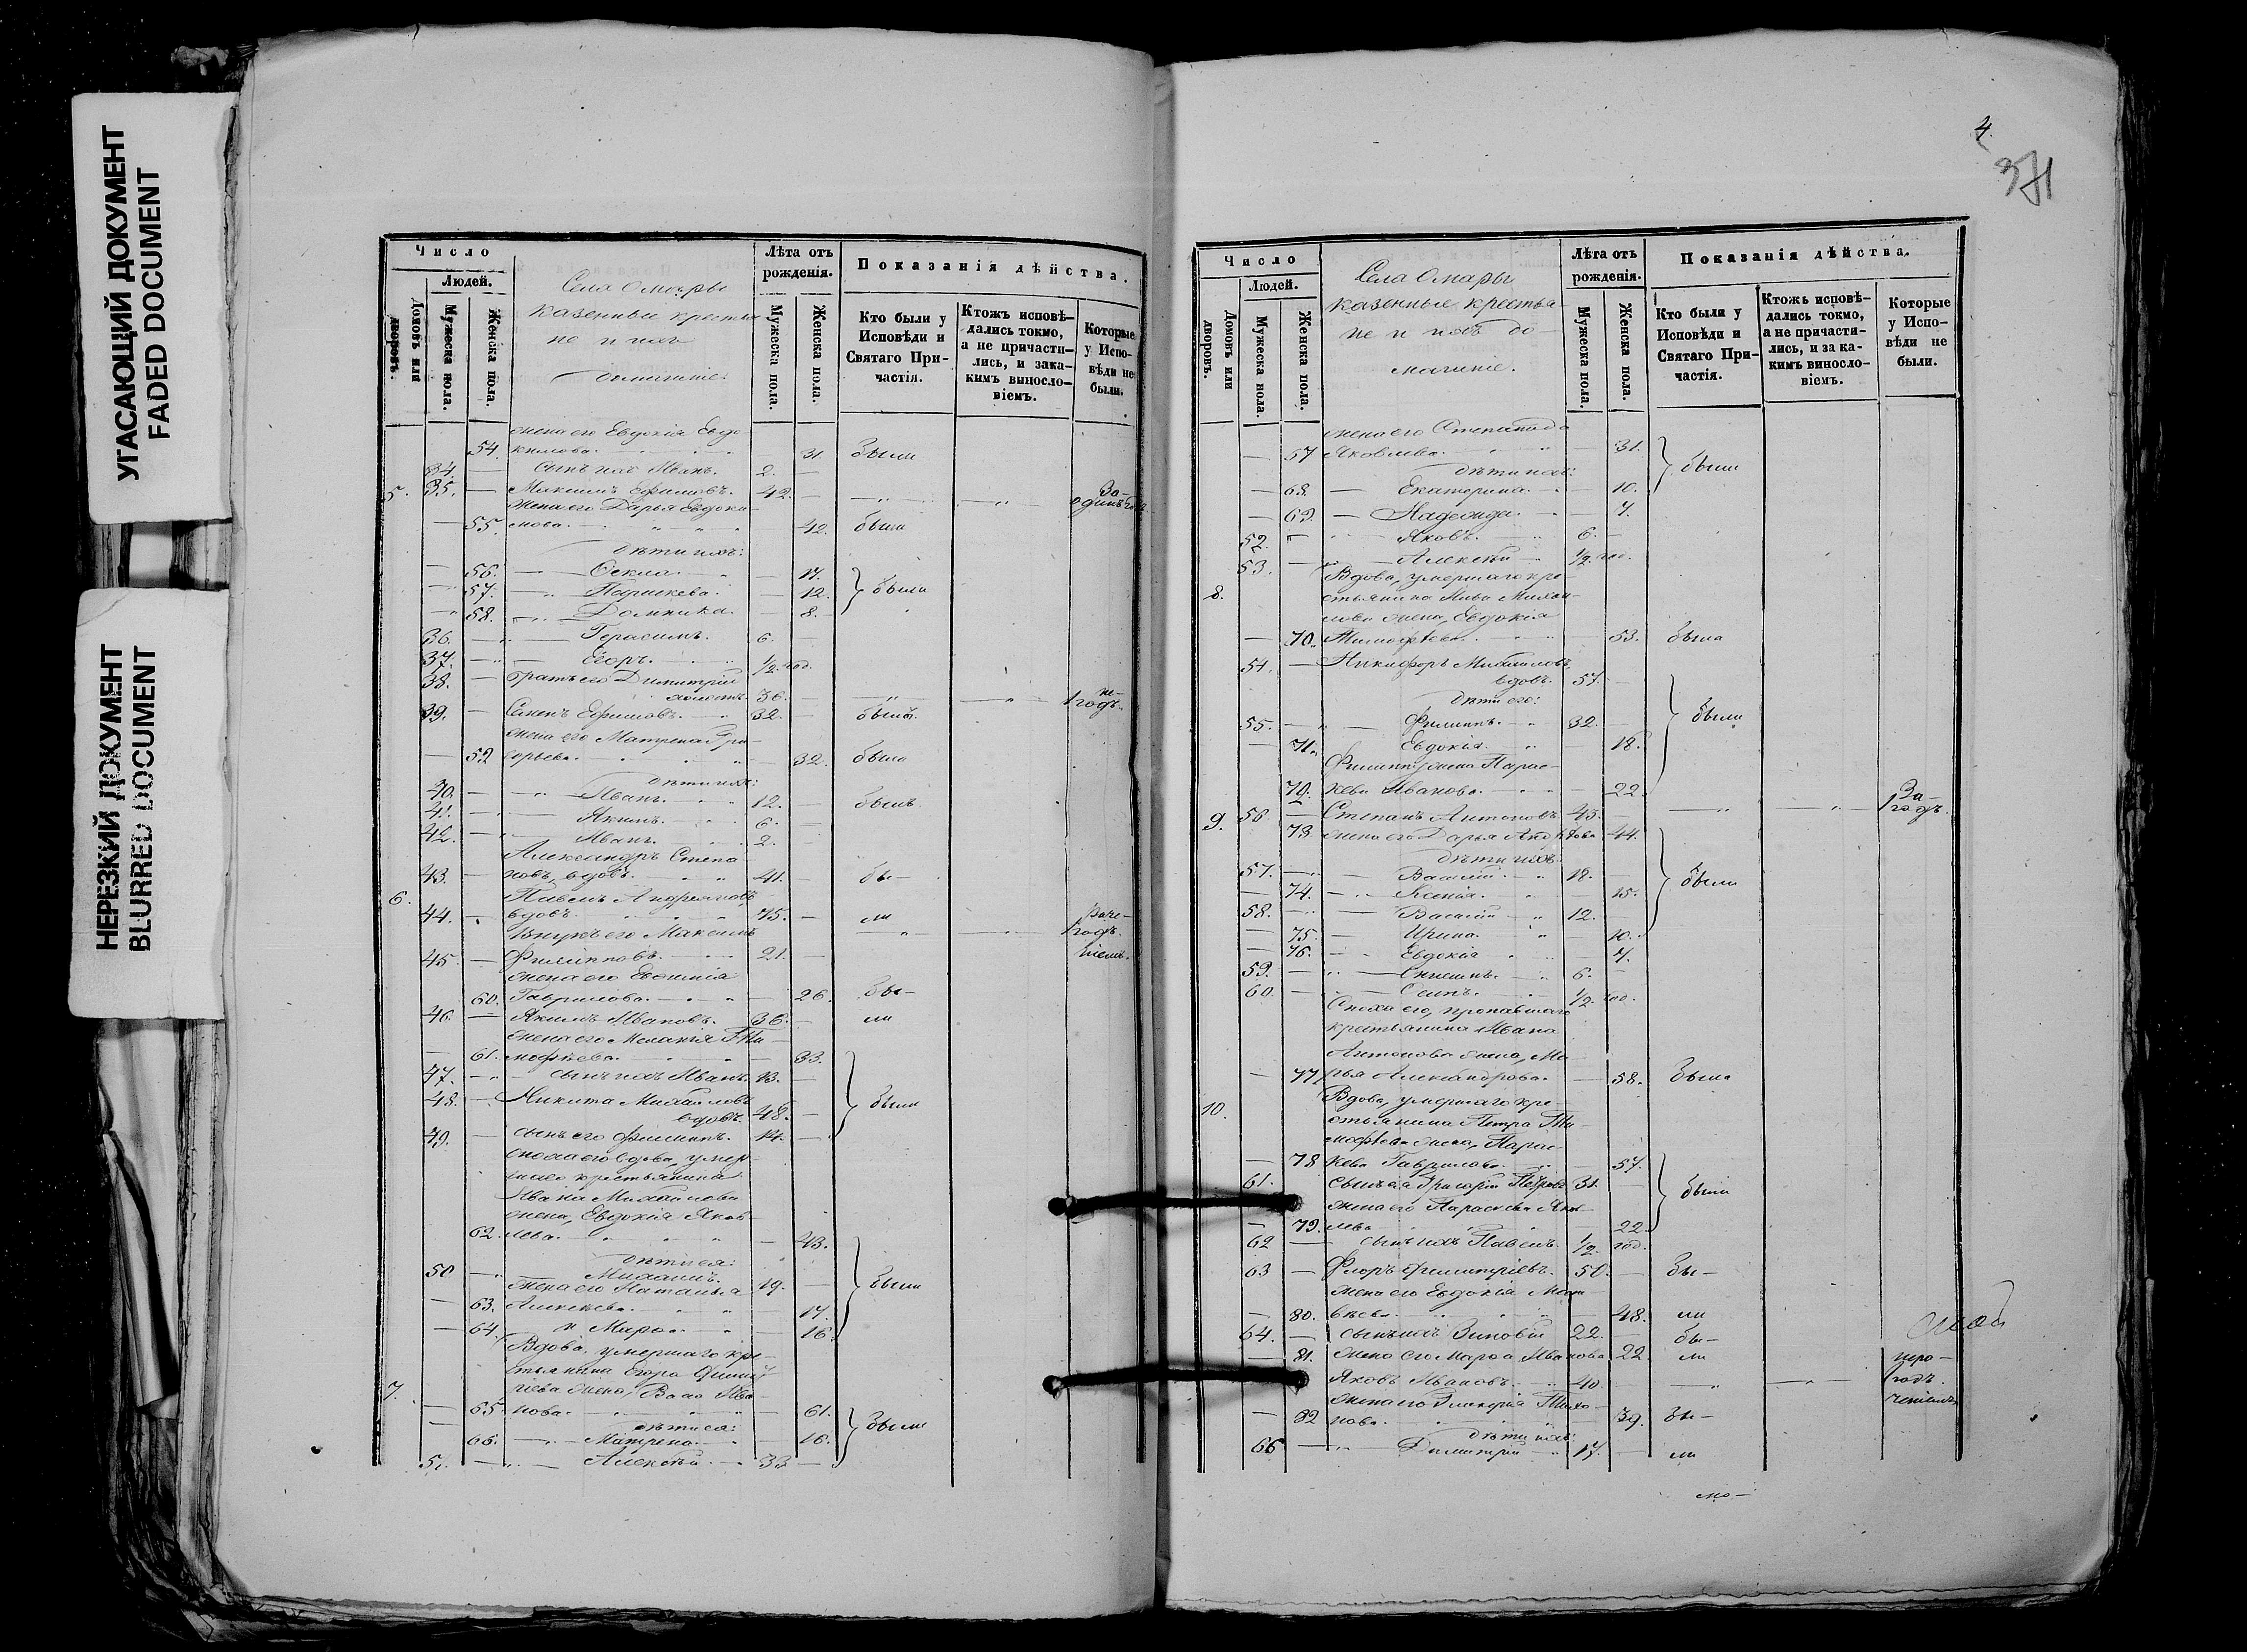 УГАСАЮЩИЙ ДОКУМЕНТ
FADED DOCUMENT
НЕРЕЗКИЙ ДОКУМЕНТ
BLURRED DOCUMENT
Число
Людей.
Домовъ или дворовъ.
Мужеска пола.
Женска пола.
Села Омары
казенные крестья-
не и ихъ
домашніе.
Лѣта отъ рожденія.
Мужеска пола.
Женска пола.
Показанія дѣйства.
Кто были у Исповѣди и Святаго При-частія.
Ктожъ исповѣ-дались токмо, а не причасти-лись, и зака-кимъ винос­ло-віемъ.
Которые у Испо-вѣди не были.
жена его Евдокія Евдо-
54. кимова. 31 были
34. сынъ ихъ Иванъ. 2.
5. 35. Максимъ Ефимовъ. 42.
жена его Дарья Евдоки-
55. мова. 42. была
дѣти ихъ:
56. Ѳекла. 17.
57. Параскева. 12. были
58. Домника. 8.
36. Герасимъ. 6.
37. Егоръ. 1/2 год.
38. братъ его Димитрій
холостъ. 36.
39. Семенъ Ефимовъ. 32. былъ
жена его Матрена Гри-
59 горьева. 32. была
дѣти ихъ:
40. Иванъ. 12. былъ
41. Якимъ. 6.
42. Иванъ. 2.
Александръ Степа-
43. новъ, вдовъ. 41. бы-
6. Павелъ Андреяновъ
44. вдовъ. 75. ли
внукъ его Максимъ
45. Филипповъ. 21.
жена его Евфимія
60. Гаврилова. 26. бы-
46. Якимъ Ивановъ. 36. ли
жена его Меланья Ти-
61. мофѣева. 33.
47. сынъ ихъ Иванъ. 13.
48. Никита Михайловъ
вдовъ. 48. были
49. сынъ его Филиппъ. 14.
сноха его вдова, умер-
шаго крестьянина
Ивана Михайлова
жена, Евдокія Яков-
62. лева. 43.
дѣти ея:
50 Михаилъ. 19.
жена его Наталья были
63. Алексѣева. 17.
64. и Марѳа. 16.
Вдова, умершаго кре-
стьянина Егора
7. жена, Васса Ива-
65. нова. 61.
дѣти ея: были
66. Матрена. 16.
51. Алексѣй. 33
4.
371
Число
Людей.
Домовъ или дворовъ.
Мужеска пола.
Женска пола.
Села Омары
казенные крестья-
не и ихъ до-
машніе.
Лѣта отъ рожденія.
Мужеска пола.
Женска пола.
Показанія дѣйства.
Кто были у Исповѣди и Святаго При-частія.
Ктожъ исповѣ-дались токмо, а не причасти-лись, и за ка-кимъ винос­ло-віемъ.
Которые у Испо-вѣди не были.
жена его Степанида
67 Яковлева. 31.
дѣти ихъ: были
68. Екатерина. 10.
69. Надежда. 7.
52. Яковъ. 6.
53. Алексѣй 1/2 год.
Вдова, умершаго кре-
8. стьянина Михаи-
лова жена, Евдокія
70. Тимофѣева. 53. была
54. Никифоръ Михайловъ
вдовъ. 57.
дѣти его:
55. Филиппъ. 32. были
71. Евдокія. 18.
Филиппа жена Парас-
72. кева Иванова. 22.
9. 56 Степанъ Антоновъ 43. За- годъ.
73. жена его Дарья 44.
дѣти ихъ:
57. Василій 18. были
74. Ксенія. 15.
58. Василій 12.
75. Ирина. 10.
76. Евдокія 7.
59. 6.
60. 1/2 год.
Сноха его, пропавшаго
крестьянина Ивана
Антонова жена, Ма-
77 рья Александрова. 58. была
Вдова, умершаго кре-
10. стьянина Петра Ти-
мофѣева жена, Парас-
78 кева Гаврилова. 57.
61. сынъ ея Григорій Петровъ 31. были
жена его Параскева Яков-
79. лева 22.
62 сынъ ихъ Павелъ. 1/2. год.
63 Флоръ Димитріевъ. 50. бы-
жена его Евдокія Мат-
80. вѣева. 48. ли
64. сынъ ихъ Зиновій 22. бы-
81. жена его Марѳа Иванова 22. ли
Яковъ Ивановъ. 40.
жена его Гликерія Тихо-
82 нова. 39. бы-
дѣти ихъ:
66 Димитрій 17. ли